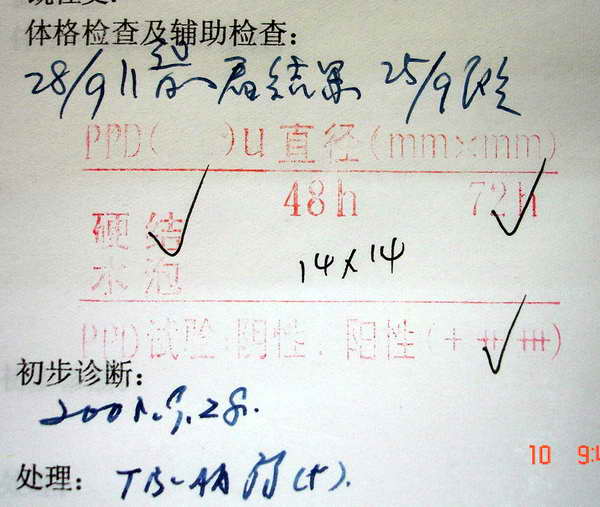 体格检查及辅助检查：
28/9 11 看结果 25/9
PPD( )u 直径(mm×mm)
48h 72h
硬结
水泡
14×14
PPD试验：阴性．阳性(+ ++ +++)
初步诊断：
处理： TB-Ab (+).
10 9:4